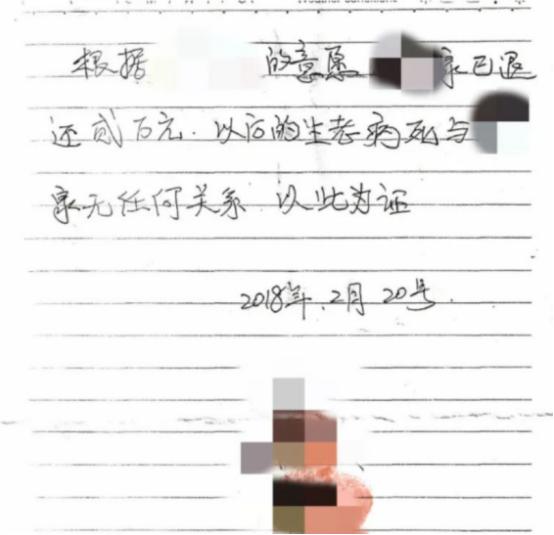 根据 的意愿 家已退
还贰万元．以后的生老病死与
家无任何关系 以此为证
2018年．2月 20号．